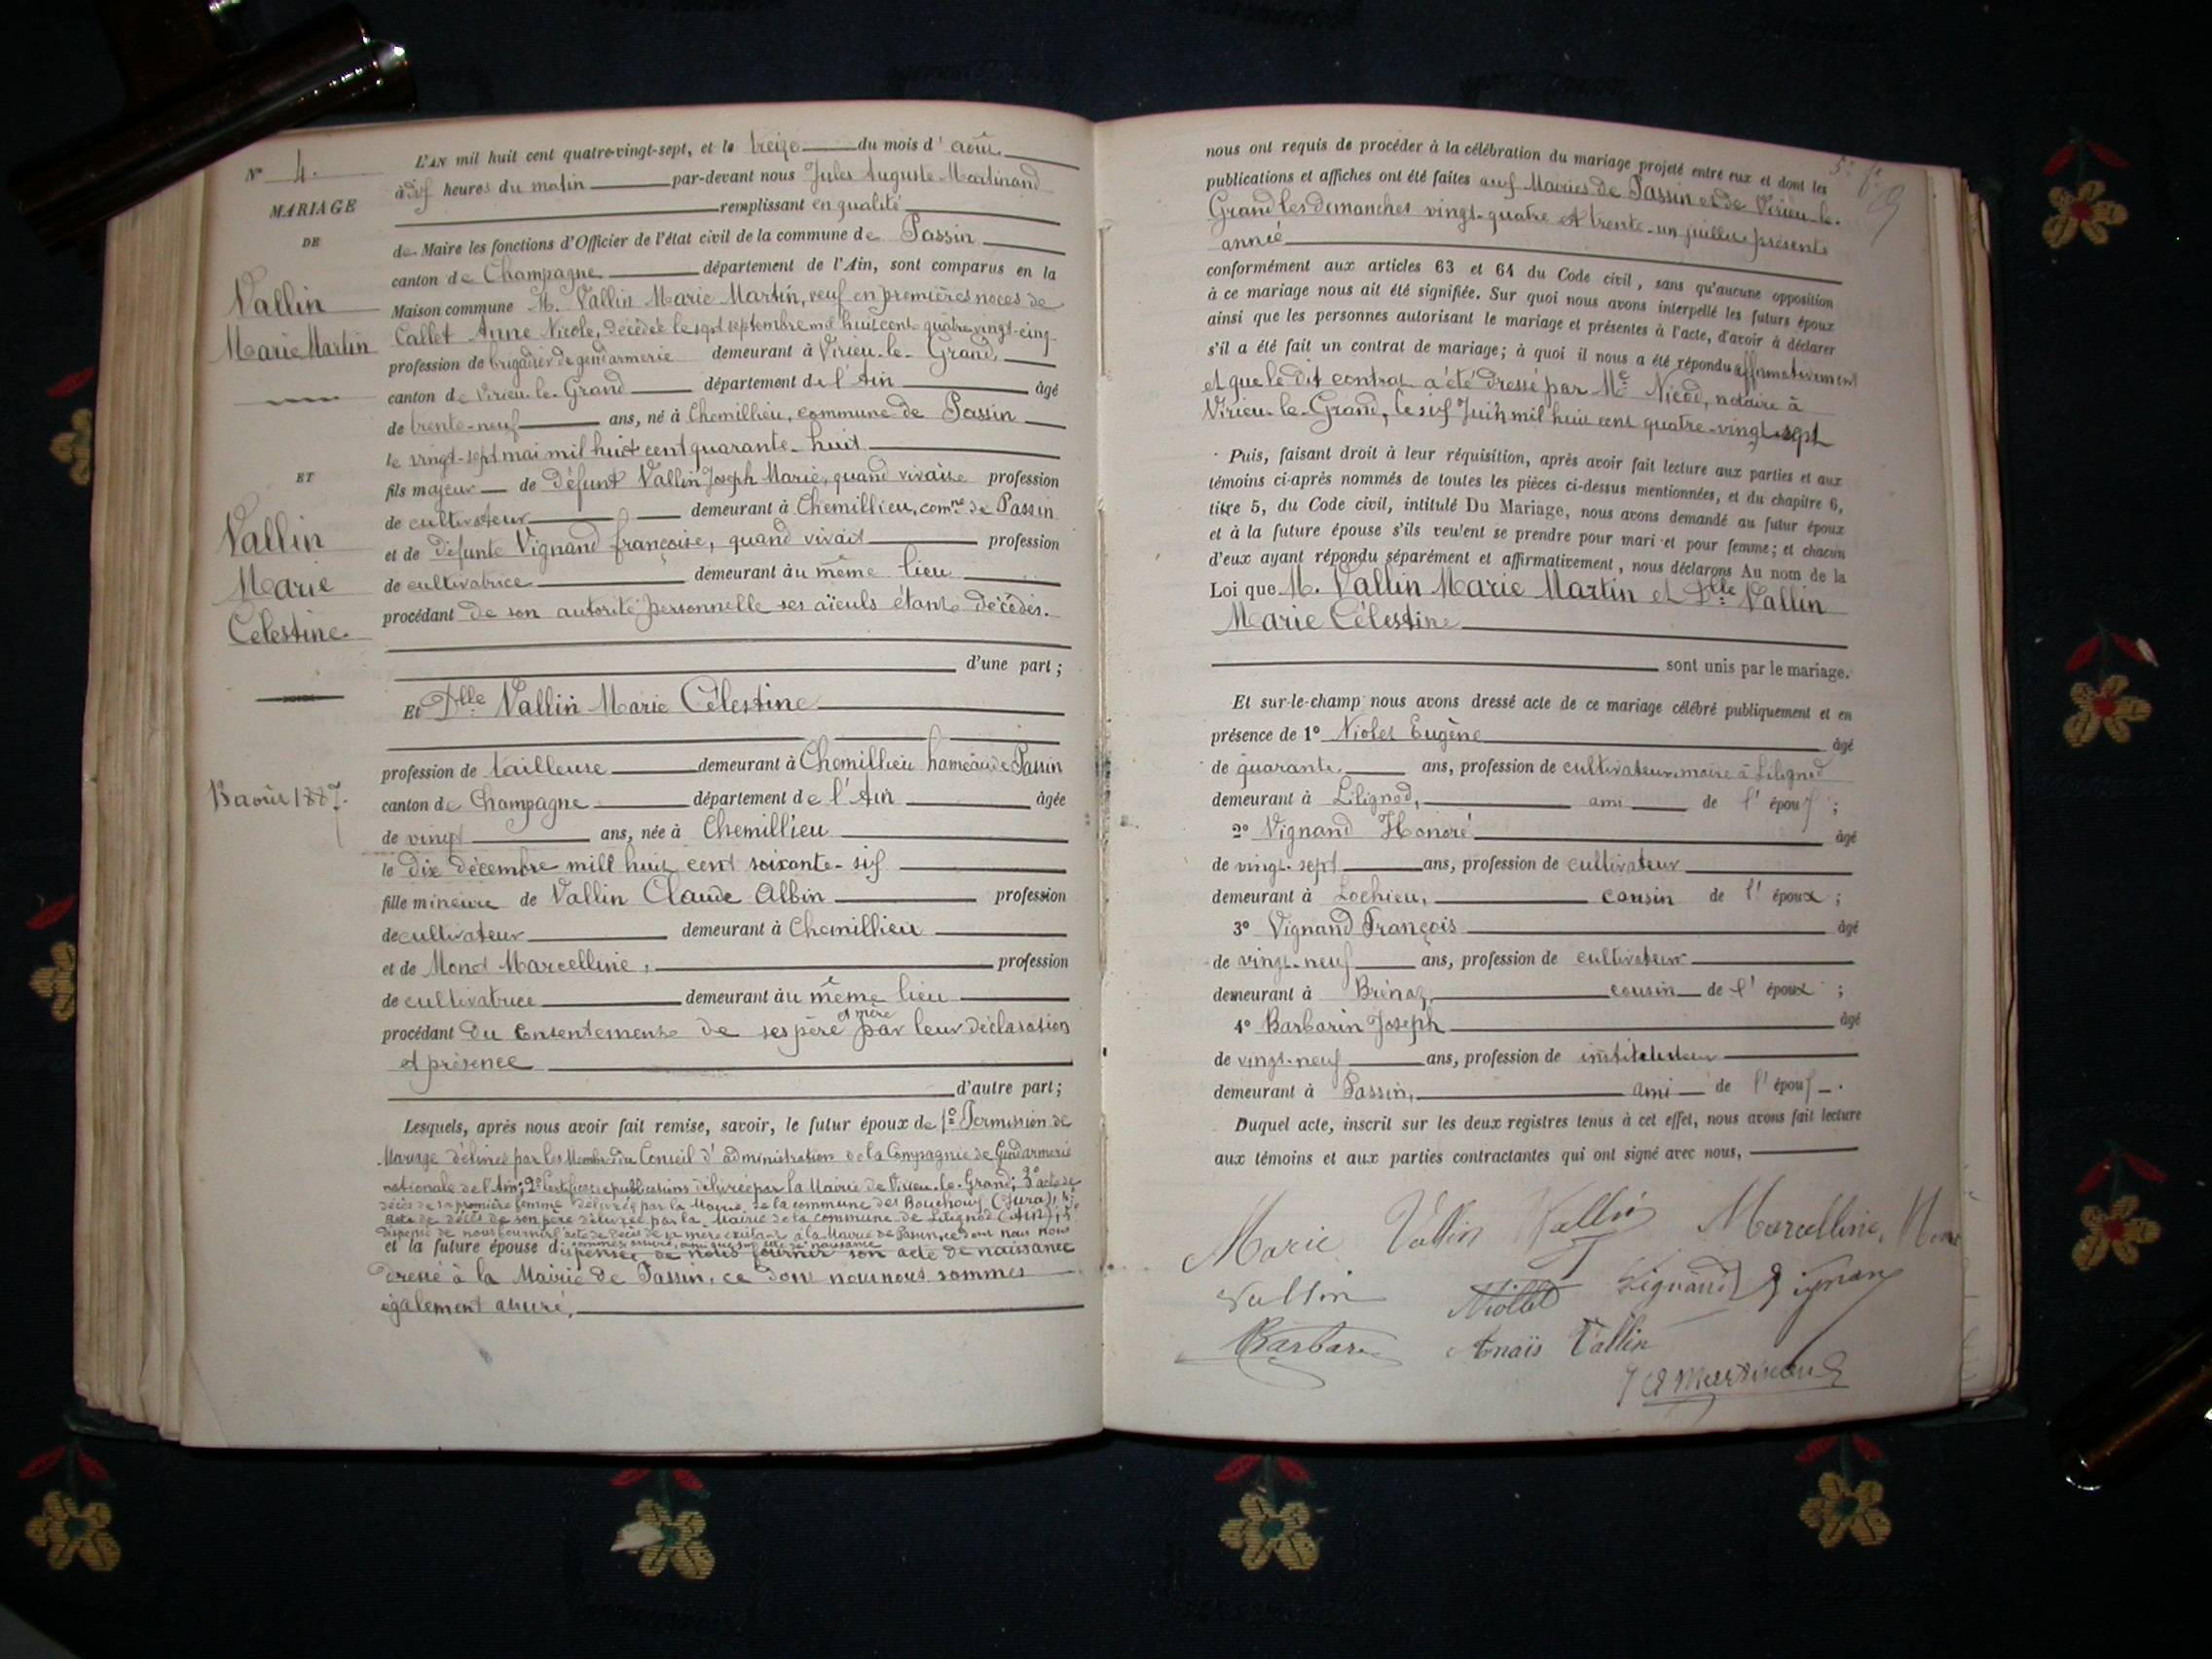 N° 4.
MARIAGE
DE
Vallin
Marie Martin
ET
Vallin
Marie
Célestine.
13 août 1887.
L'AN mil huit cent quatre-vingt-sept, et le treize du mois d'août
à dix heures du matin par-devant nous Jules Auguste Martinand
remplissant en qualité
de Maire les fonctions d'Officier de l'état civil de la commune de Passin
canton de Champagne département de l'Ain, sont comparus en la
Maison commune M. Vallin Marie Martin, veuf en premières noces de
Callet Anne Nicole, décédée le sept septembre mil huit cent quatre vingt-cinq
profession de brigadier de gendarmerie demeurant à Virieu-le-Grand,
canton de Virieu-le-Grand département de l'Ain âgé
de trente-neuf ans, né à Chemillieu, commune de Passin
le vingt-sept mai mil huit cent quarante-huit
fils majeur de défunt Vallin Joseph Marie, quand vivait profession
de cultivateur demeurant à Chemillieu, comne de Passin
et de défunte Vignand françoise, quand vivait profession
de cultivatrice demeurant au même lieu
procédant de son autorité personnelle ses aïeuls étant décédés.
d'une part;
Et Dlle Vallin Marie Célestine
profession de tailleuse demeurant à Chemillieu hameau de Passin
canton de Champagne département de l'Ain âgée
de vingt ans, née à Chemillieu
le dix décembre mill huit cent soixante-six
fille mineure de Vallin Claude Albin profession
de cultivateur demeurant à Chemillieu
et de Monet Marcelline, profession
de cultivatrice demeurant au même lieu
procédant du consentement de ses père et mère par leur déclaration
et présence
d'autre part;
Lesquels, après nous avoir fait remise, savoir, le futur époux de 1° Permission de
Mariage délivrée par les Membres du Conseil d'administration de la Compagnie de Gendarmerie
nationale de l'Ain; 2° Certificat de publications délivrée par la Mairie de Virieu-le-Grand; 3° acte de
décès de sa première femme délivrée par la Mairie de la commune des Bouchoux (Jura), 4°
acte de décès de son père délivrée par la Mairie de la commune de Lilignod (Ain); 5°
dispensé de nous fournir l'acte de décès de sa mère existant à la Mairie de Passin, ce dont nous nous
sommes assuré, ainsi que son acte de naissance
et la future épouse dispensée de nous fournir son acte de naissance
dressé à la Mairie de Passin, ce dont nous nous sommes
également assuré,
nous ont requis de procéder à la célébration du mariage projeté entre eux et dont les
publications et affiches ont été faites aux Mairies de Passin et de Virieu-le-
Grand les dimanches vingt-quatre et trente-un juillet présente
année
conformément aux articles 63 et 64 du Code civil, sans qu'aucune opposition
à ce mariage nous ait été signifiée. Sur quoi nous avons interpellé les futurs époux
ainsi que les personnes autorisant le mariage et présentes à l'acte, d'avoir à déclarer
s'il a été fait un contrat de mariage; à quoi il nous a été répondu affirmativement
et que le dit contrat a été dressé par Me Nicod, notaire à
Virieu-le-Grand, le six Juin mil huit cent quatre-vingt-sept
Puis, faisant droit à leur réquisition, après avoir fait lecture aux parties et aux
témoins ci-après nommés de toutes les pièces ci-dessus mentionnées, et du chapitre 6,
titre 5, du Code civil, intitulé Du Mariage, nous avons demandé au futur époux
et à la future épouse s'ils veulent se prendre pour mari et pour femme; et chacun
d'eux ayant répondu séparément et affirmativement, nous déclarons Au nom de la
Loi que M. Vallin Marie Martin et Dlle Vallin
Marie Célestine
sont unis par le mariage.
Et sur-le-champ nous avons dressé acte de ce mariage célébré publiquement et en
présence de 1° Niolet Eugène âgé
de quarante ans, profession de cultivateur, maire à Lilignod
demeurant à Lilignod, ami de l'époux;
2° Vignand Honoré âgé
de vingt-sept ans, profession de cultivateur
demeurant à Lochieu, cousin de l'époux;
3° Vignand François âgé
de vingt-neuf ans, profession de cultivateur
demeurant à Brénaz, cousin de l'époux;
4° Barbarin Joseph âgé
de vingt-neuf ans, profession de instituteur
demeurant à Passin, ami de l'époux.
Duquel acte, inscrit sur les deux registres tenus à cet effet, nous avons fait lecture
aux témoins et aux parties contractantes qui ont signé avec nous,
Marie Vallin Vallin Marcelline Monet
Vallin Niollet Vignand Vignand
Barbarin Anaïs Vallin
J A Martinand